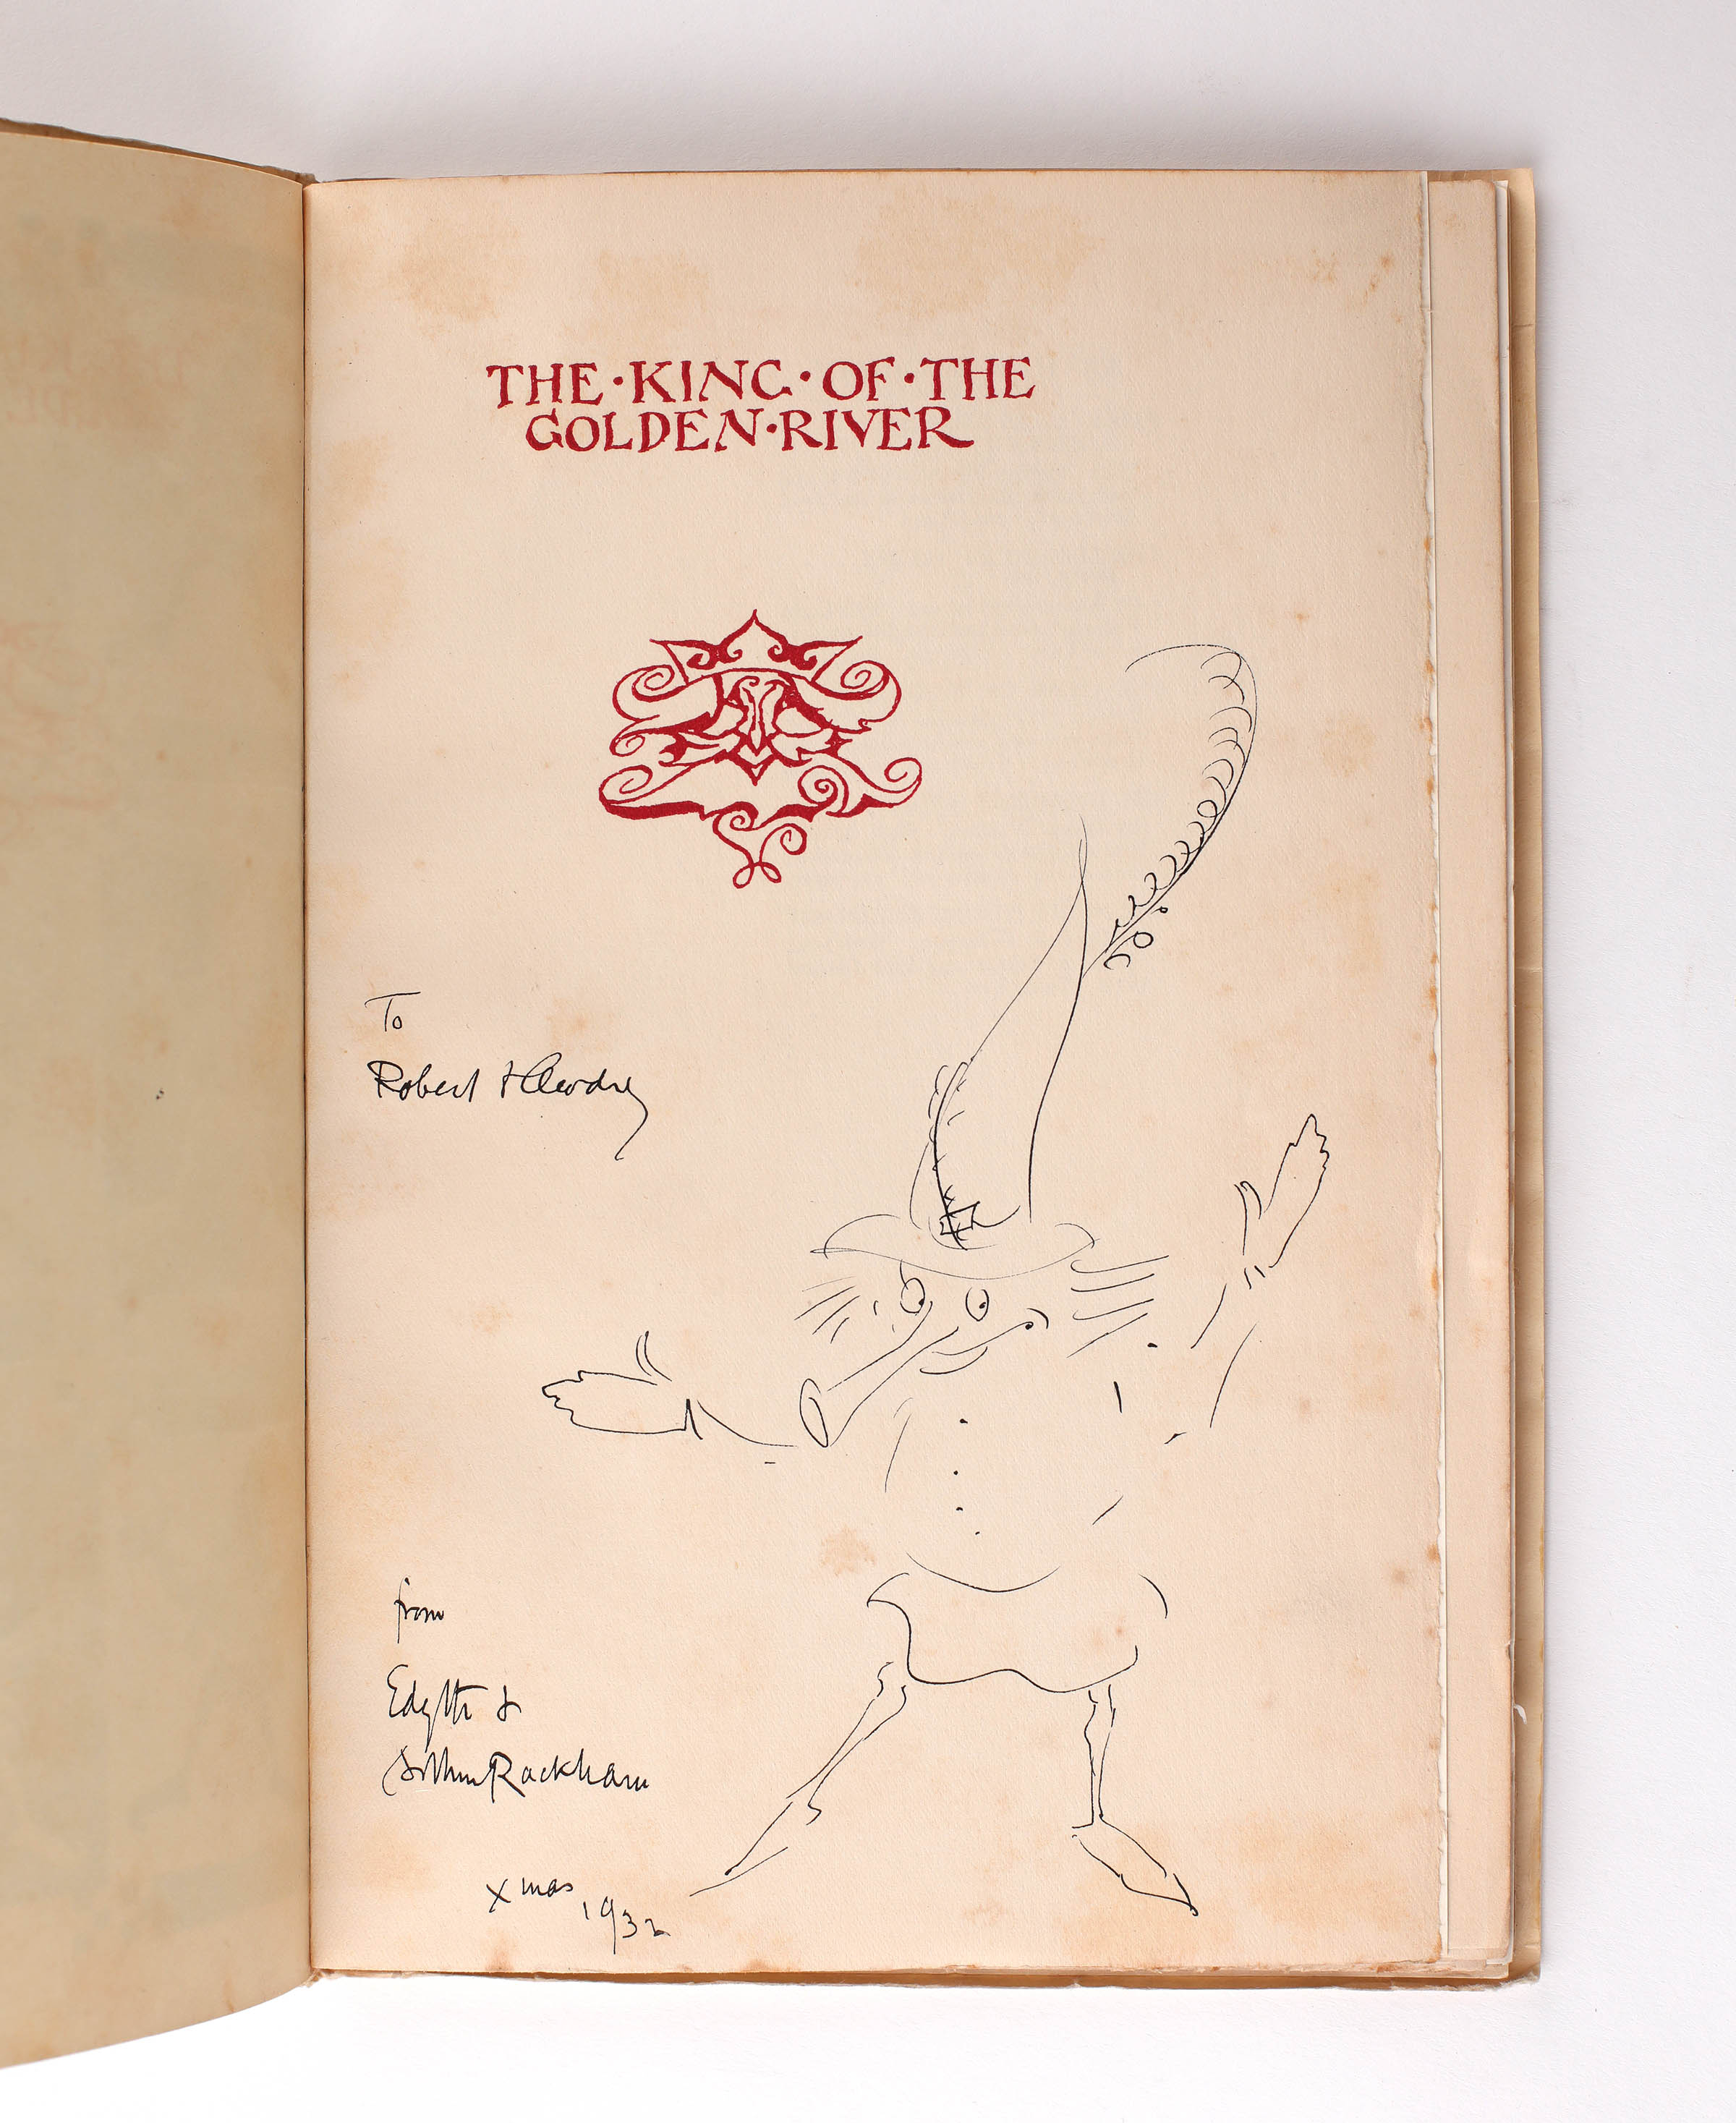 THE·KING·OF·THE
GOLDEN·RIVER
To
Robert &
from
Edyth &
Arthur Rackham
Xmas
1932